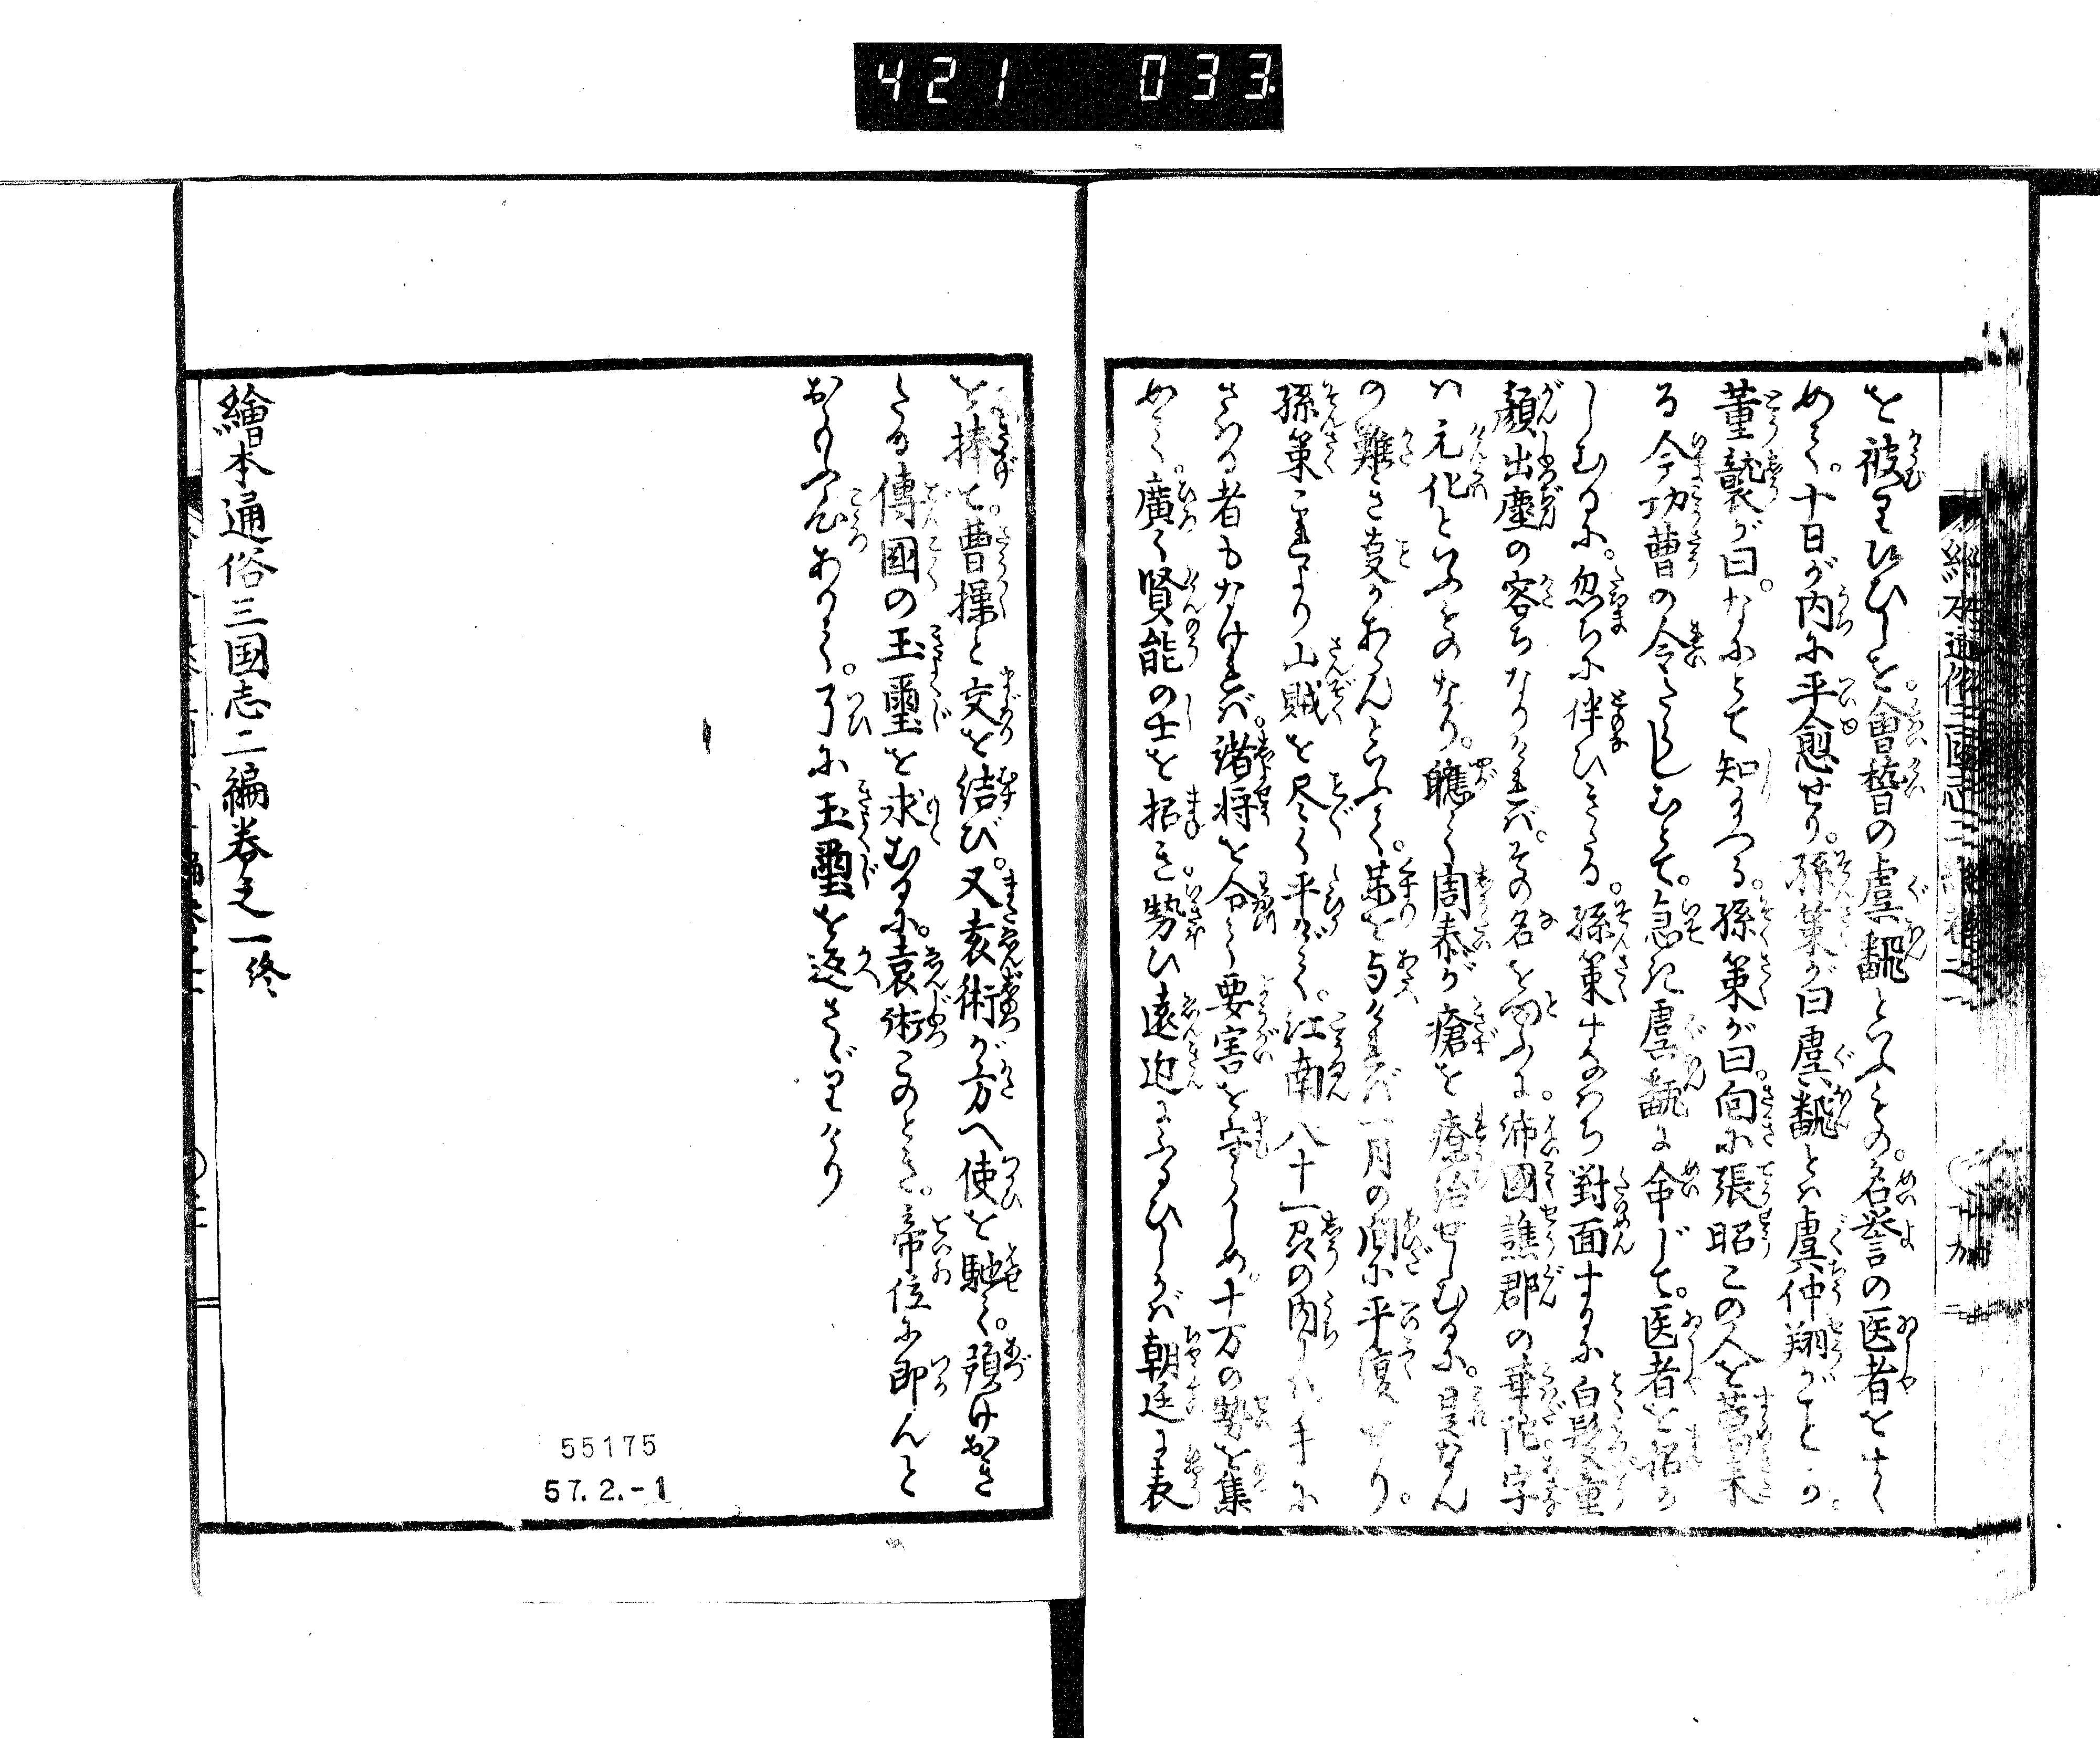 421 033
繪本通俗三國志二編卷之一
を被りひしを會稽の虞翻といふもの。名誉の医者をすく
めて。十日が内に平愈せり。孫策が曰虞翻とは虞仲翔がことか。
董襲が曰。なにとて知まへる。孫策が曰。向に張昭この人を薦来
る今功曹の令たらしむとて。急ぎ虞翻に命じて。医者を招か
しむるに。忽ちに伴ひきたる。孫策すなわち對面するに白髪童
顔出塵の容ちなりければ。その名を問ふに。沛國譙郡の華陀字
は元化といふものなり。軈て周泰が瘡を療治せしむるに。是なん
の難き事かあらんといふて。薬を与ければ一月の間に平復せり。
孫策これより山賊を尽く平げて。江南八十一州の内には手に
さわる者もなければ。諸将を分て要害を守らしめ。十万の勢を集
めて。廣く賢能の士を招き。勢ひ遠近にふるひしかば朝廷に表
を捧て。曹操と交を結び。又袁術が方へ使を馳て。預けおき
たる傳國の玉璽を求むるに。袁術このとき。帝位に即んと
おもふ心ありて。了に玉璽を返さゞりけり
繪本通俗三国志二編巻之一終
55175
57.2.-1